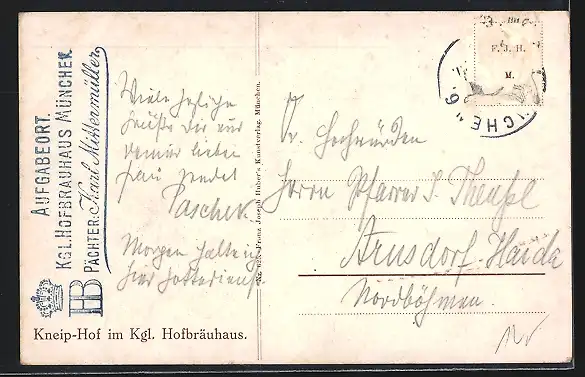 AUFGABEORT.
KGL. HOFBRÄUHAUS MÜNCHEN.
PÄCHTER: Karl Mittermüller
HB
Viele herzliche
Grüße Dir und
Deiner lieben
Frau sendet
Paschek
Morgen halte ich
hier Gottesdienst
Kneip-Hof im Kgl. Hofbräuhaus.
Nr. 828. Franz Joseph Huber's Kunstverlag, München.
F. J. H.
M.
CHE
9
Sr. Hochwürden
Herrn Pfarrer J.
Arnsdorf-Haida
Nordböhmen.